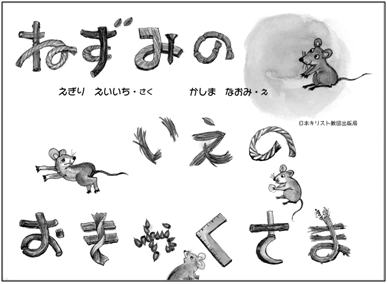 ねずみの
えぎり えいいち・さく かしま なおみ・え
日本キリスト教団出版局
いえの
おきゃくさま